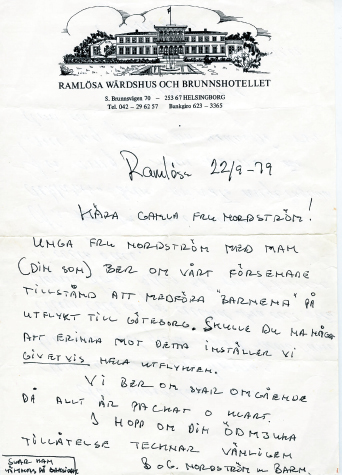 RAMLÖSA WÄRDSHUS OCH BRUNNSHOTELLET
S. Brunnsvägen 70 – 253 67 HELSINGBORG
Tel. 042 – 29 62 57 Bankgiro 623 – 3365
Ramlösa 22/9-79
KÄRA GAMLA FRU NORDSTRÖM!
UNGA FRU NORDSTRÖM MED MAN
(DIN SON) BER OM VÅRT FÖRSENADE
TILLSTÅND ATT MEDFÖRA "BARNENA" PÅ
UTFLYKT TILL GÖTEBORG. SKULLE DU HA NÅGOT
ATT ERINRA MOT DETTA INSTÄLLER VI
GIVETVIS HELA UTFLYKTEN.
VI BER OM SVAR OMGÅENDE
DÅ ALLT ÄR PACKAT O KLART.
I HOPP OM DIN ÖDMJUKA
TILLÅTELSE TECKNAR VÄNLIGEN
B o G. NORDSTRÖM m BARN.
SVAR KAN
LÄMNAS PÅ